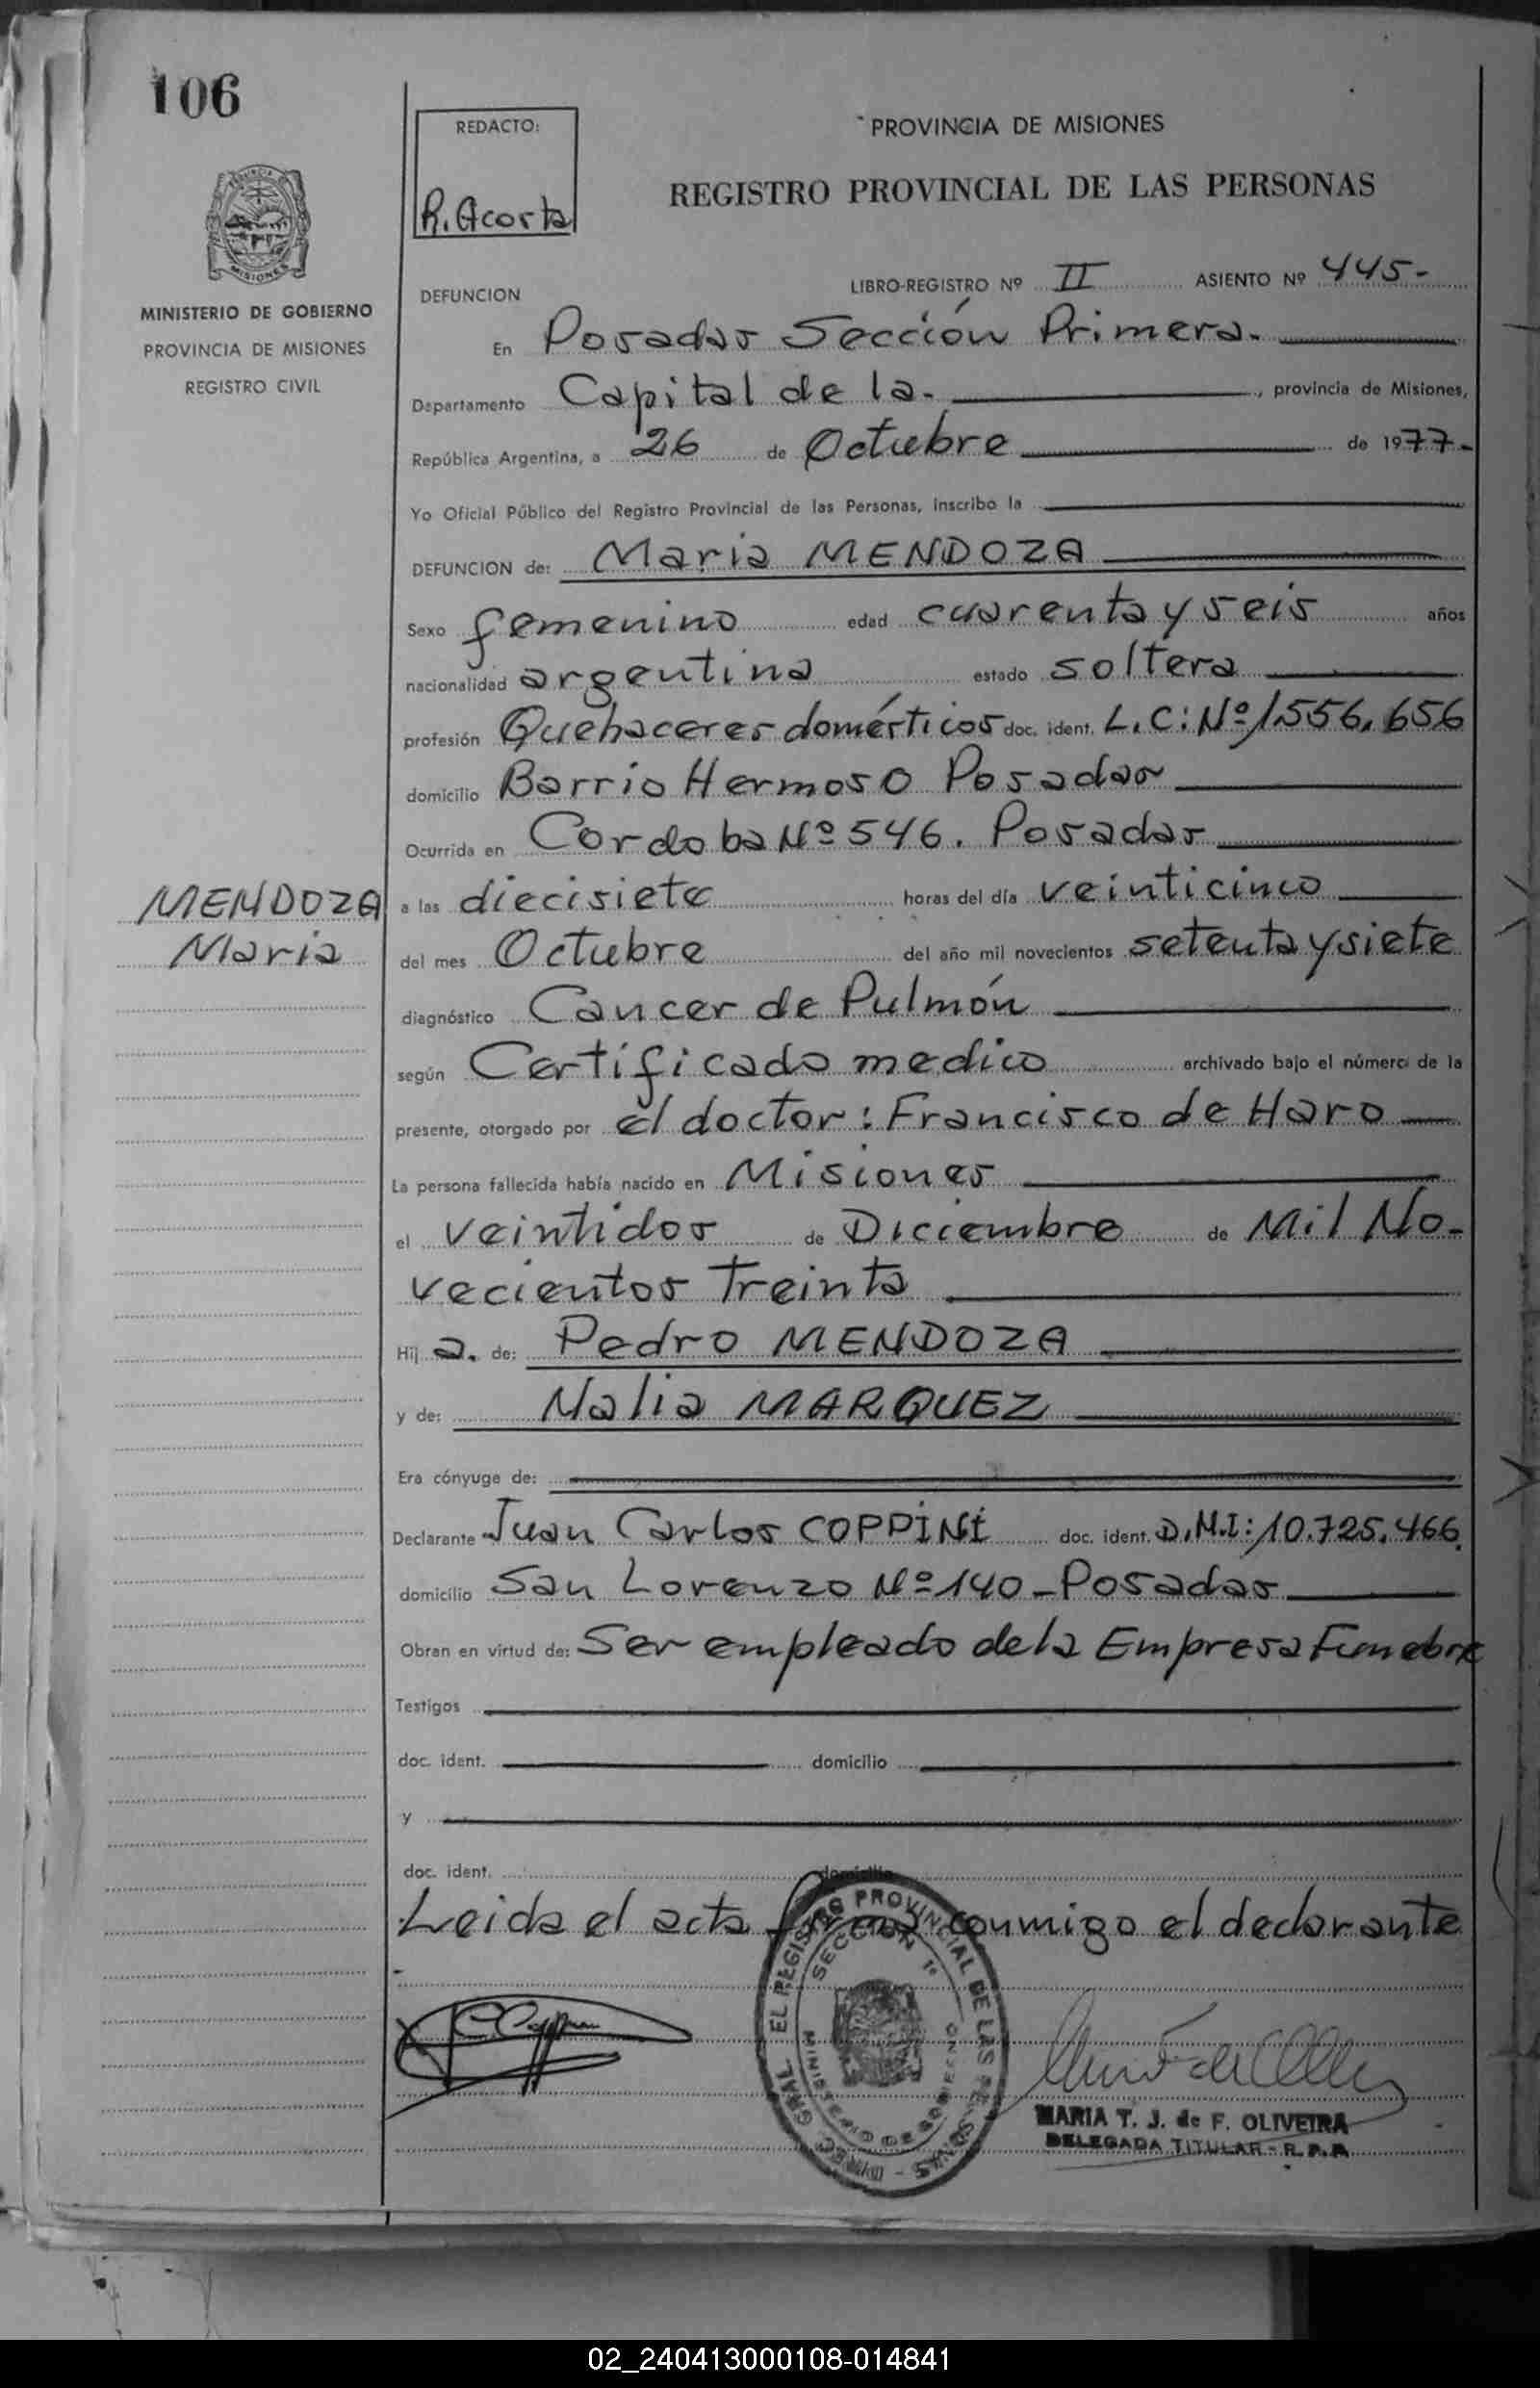 106
REDACTO:
R. Acosta
PROVINCIA DE MISIONES
REGISTRO PROVINCIAL DE LAS PERSONAS
MISIONES
MINISTERIO DE GOBIERNO
PROVINCIA DE MISIONES
REGISTRO CIVIL
DEFUNCION
LIBRO-REGISTRO Nº II ASIENTO Nº 445-
En Posadas Sección Primera.
Departamento Capital de la. , provincia de Misiones,
República Argentina, a 26 de Octubre de 1977-
Yo Oficial Público del Registro Provincial de las Personas, inscribo la
DEFUNCION de: Maria MENDOZA
Sexo femenino edad cuarenta y seis años
nacionalidad argentina estado soltera
profesión Quehaceres domésticos doc. ident. L.C: Nº 1.556.656
domicilio Barrio Hermoso Posadas
Ocurrida en Cordoba Nº 546. Posadas
MENDOZA
Maria
a las diecisiete horas del día veinticinco
del mes Octubre del año mil novecientos setenta y siete
diagnóstico Cancer de Pulmón
según Certificado medico archivado bajo el número de la
presente, otorgado por el doctor: Francisco de Haro
La persona fallecida había nacido en Misiones
el veintidos de Diciembre de Mil No-
vecientos Treinta
Hij a. de: Pedro MENDOZA
y de: Nalia MARQUEZ
Era cónyuge de:
Declarante Juan Carlos COPPINI doc. ident. D.N.I: 10.725.466.
domicilio San Lorenzo Nº 140 - Posadas
Obran en virtud de: Ser empleado de la Empresa Funebre
Testigos
doc. ident. domicilio
y
doc. ident. domicilio
Leida el acta firma conmigo el declarante
DIREC. GRAL. EL REGISTRO PROVINCIAL DE LAS PERSONAS -
SECCION 1º
MINISTERIO DE GOBIERNO
MARIA T. J. de F. OLIVEIRA
DELEGADA TITULAR - R. P. P.
02_240413000108-014841